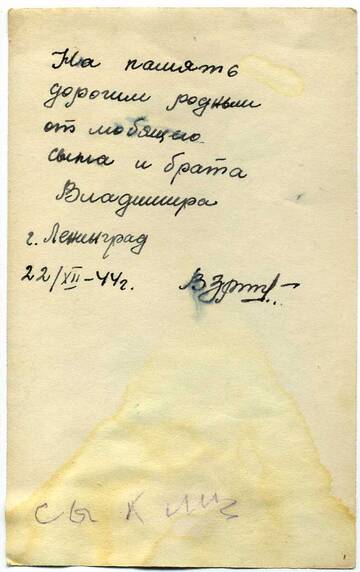 На память
дорогим родным
от любящего
сына и брата
Владимира
г. Ленинград
22/XII-44г.
сы к